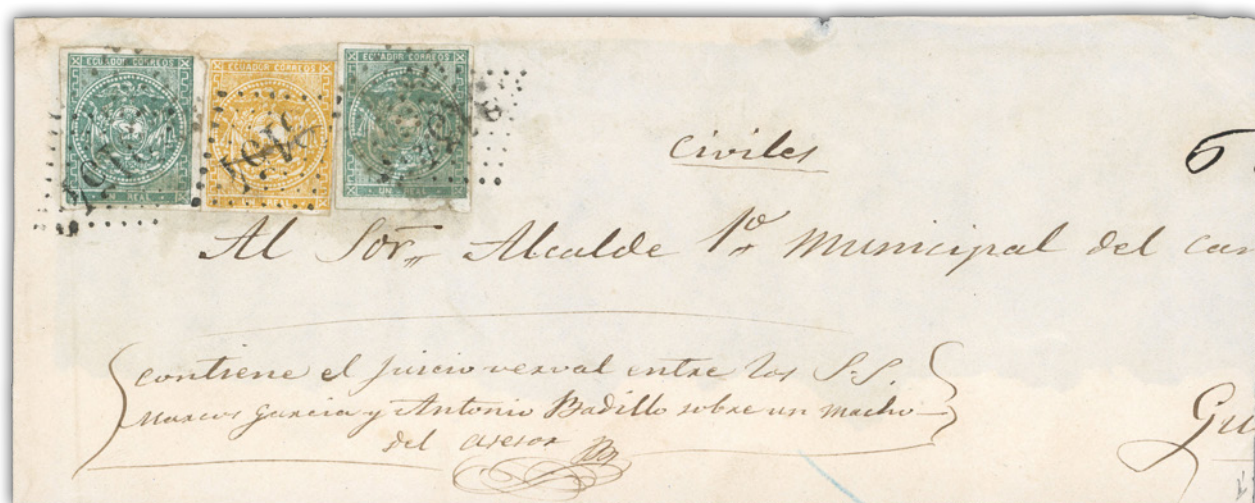 ECUADOR CORREOS ECUADOR CORREOS ECUADOR CORREOS
UN REAL UN REAL UN REAL
Civiles 6
Al Sor. Alcalde 1º Municipal del can
contiene el juicio verval entre los S.S.
Marcos Garcia y Antonio Badillo sobre un macho
del asesor
Gu